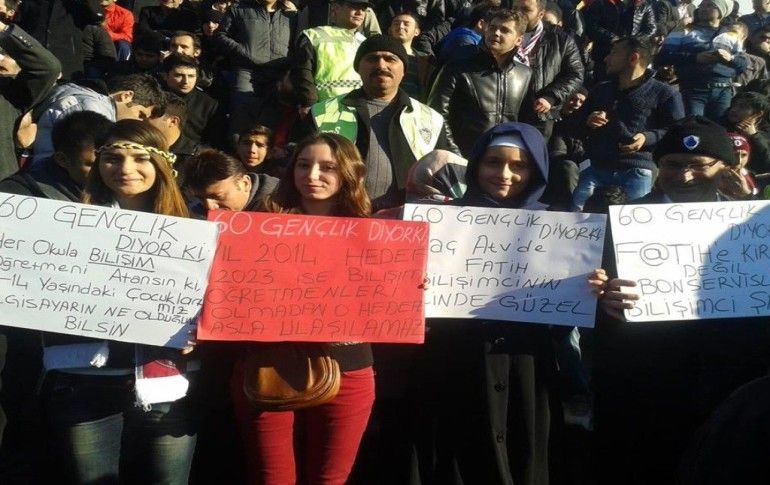 60 GENÇLİK
DİYOR Kİ
Her Okula BİLİŞİM
Öğretmeni Atansın ki
-14 Yaşındaki Çocuklarımız
BİLGİSAYARIN NE OLDUĞUNU
BİLSİN
60 GENÇLİK DİYORKİ
YIL 2014 HEDEF
2023 İSE BİLİŞİM
ÖĞRETMENLERİ
OLMADAN O HEDEFE
ASLA ULAŞILAMAZ
60 GENÇLİK DİYORKİ
AÇ Atv'de
FATİH
BİLİŞİMCİNİN
ELİNDE GÜZEL
60 GENÇLİK
DİYO
F@TİHe KIR
DEĞİL
BONSERVİSL
BİLİŞİMCİ Ş